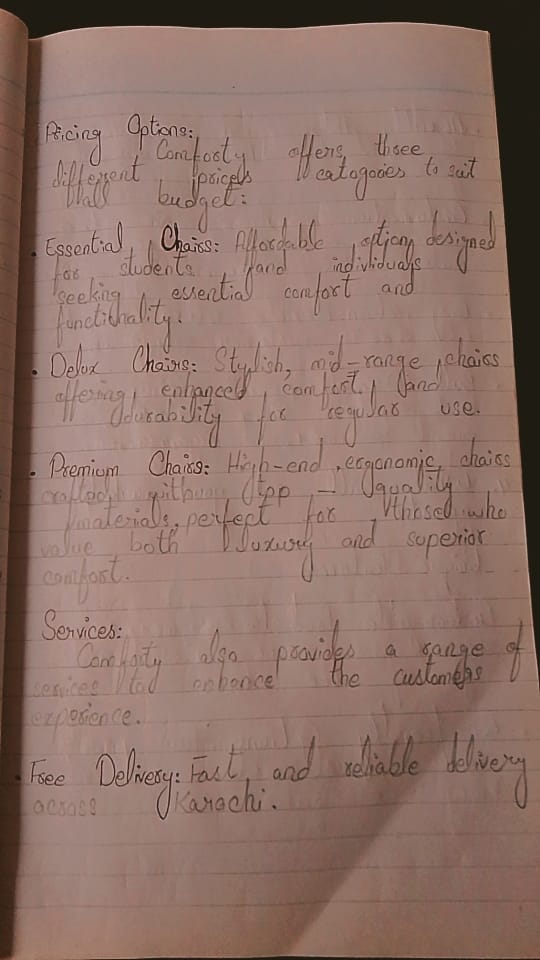 Pricing Options:
Comforty offers three
different prices catogories to suit
all budget:
• Essential Chairs: Affordable option designed
for students and individuals
seeking essential comfort and
functionality.
• Delux Chairs: Stylish, mid-range chairs
offering enhanced comfort and
durability for regular use.
• Premium Chairs: High-end, ergonomic chairs
crafted with top - quality
materials, perfect for those who
value both luxury and superior
comfort.
Services:
Comforty also provides a range of
services to enhance the customers
experience.
• Free Delivery: Fast and reliable delivery
across Karachi.